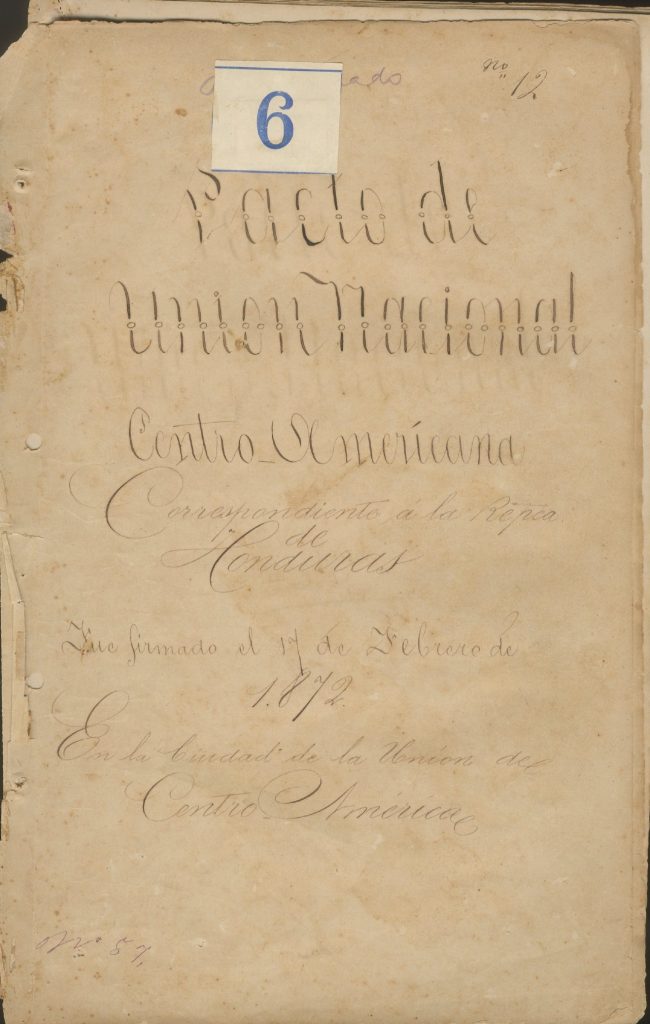 nº 12
6
Pacto de
Union Nacional
Centro-Americana
Correspondiente á la Repca
de
Honduras
Fue firmado el 17 de Febrero de
1.872.
En la Ciudad de la Union de
Centro-América